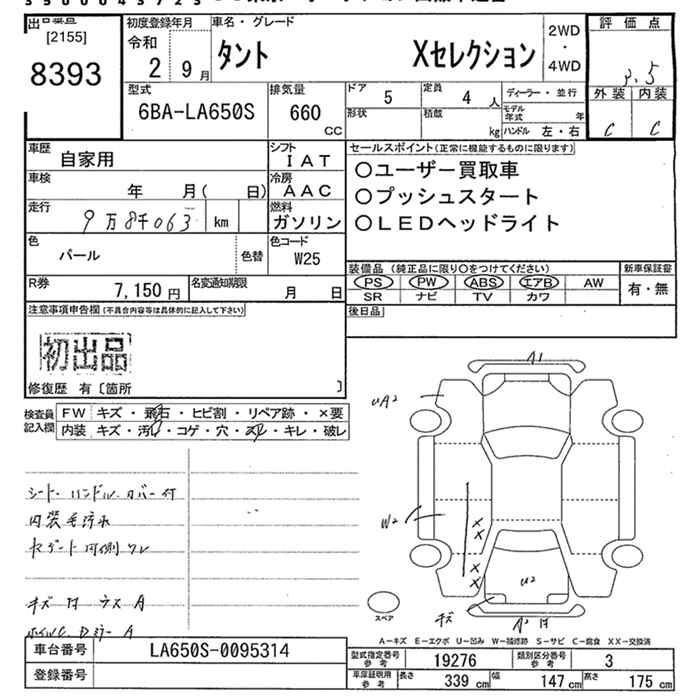 出品番号
[2155]
8393
初度登録年月
令和
2 9月
車名・グレード
タント Xセレクション
2WD
・
4WD
評価点
3.5
外装 内装
C C
型式
6BA-LA650S
排気量
660
CC
ドア 5
形状
定員 4 人
積載 kg
ディーラー・並行
モデル年式 年
ハンドル 左・右
車歴 自家用
シフト
IAT
車検 年 月( 日)
冷房
AAC
走行 9万8千063 km
燃料
ガソリン
色
パール
色替
色コード
W25
R券 7,150円
名変通知期限
月 日
セールスポイント(正常に機能するものに限ります)
○ユーザー買取車
○プッシュスタート
○LEDヘッドライト
装備品(純正品に限り○をつけてください)
PS PW ABS エアB AW
SR ナビ TV カワ
新車保証書
有・無
後日品
注意事項申告欄(不具合内容等は具体的に記入して下さい)
初出品
修復歴 有〔箇所 〕
検査員
記入欄
FW キズ・飛石・ヒビ割・リペア跡・×要
内装 キズ・汚れ・コゲ・穴・スレ・キレ・破レ
シート・ハンドルカバー付
内装毛汚れ
キズ 凹 ウス A
A1
UA2
W2
×
×
×
×
U2
キズ
スペア
A-キズ E-エクボ U-凹み W-補修跡 S-サビ C-腐食 XX-交換済
車台番号 LA650S-0095314
登録番号
型式指定番号
参考
19276
類別区分番号
参考
3
車庫証明用
参考
長さ 339 cm 幅 147 cm 高さ 175 cm